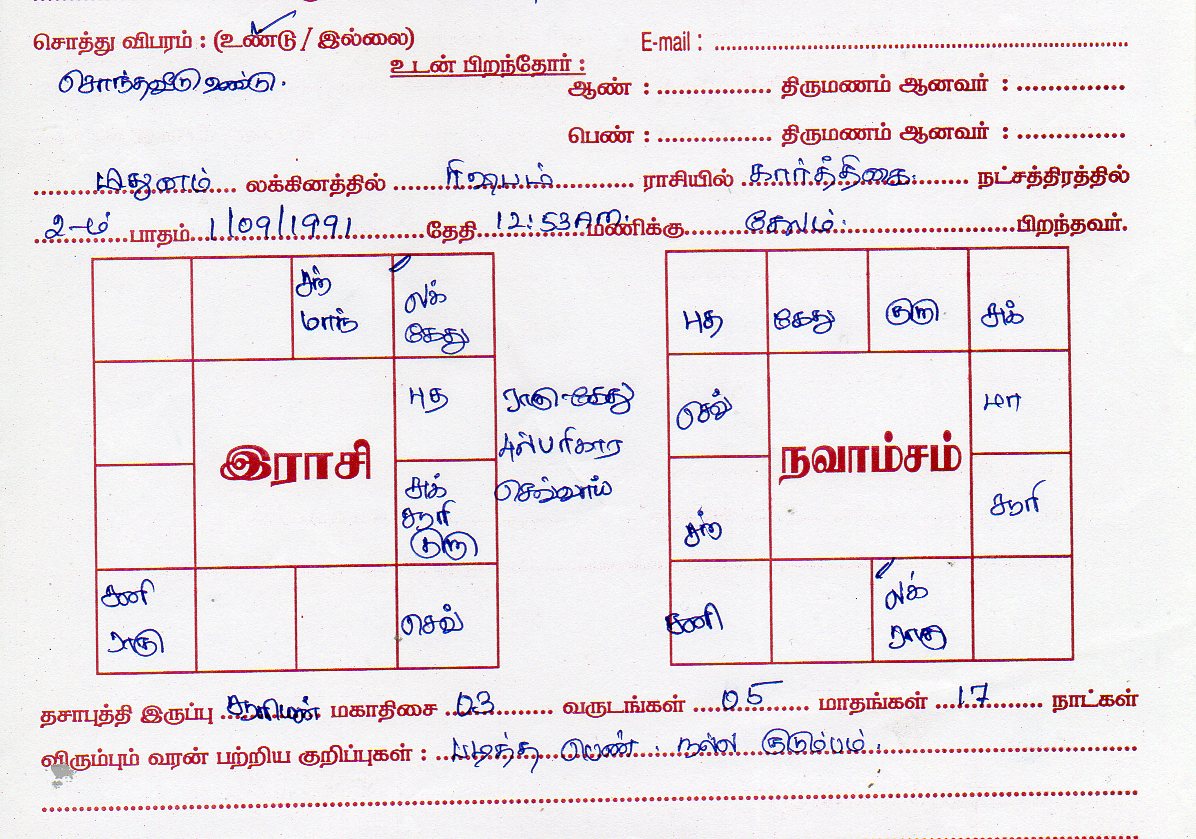 சொத்து விபரம் : (உண்டு / இல்லை)
E-mail :
சொந்தவீடு உண்டு.
உடன் பிறந்தோர் :
ஆண் : திருமணம் ஆனவர் :
பெண் : திருமணம் ஆனவர் :
மிதுனம் லக்கினத்தில் ரிஷபம் ராசியில் கார்த்திகை நட்சத்திரத்தில்
2-ம் பாதம் 1/09/1991 தேதி 12:53AM மணிக்கு சேலம். பிறந்தவர்.
சந் மாந்
லக் கேது
புத
சுக் சூரி குரு
சனி ராகு
செவ்
இராசி
ராகு-கேது
செவ்வாய்
புத கேது குரு சுக்
செவ் மா
நவாம்சம்
சந் சூரி
சனி லக் ராகு
தசாபுத்தி இருப்பு சூரியன் மகாதிசை 03 வருடங்கள் 05 மாதங்கள் 17 நாட்கள்
விரும்பும் வரன் பற்றிய குறிப்புகள் : படித்த பெண். நல்ல குடும்பம்.